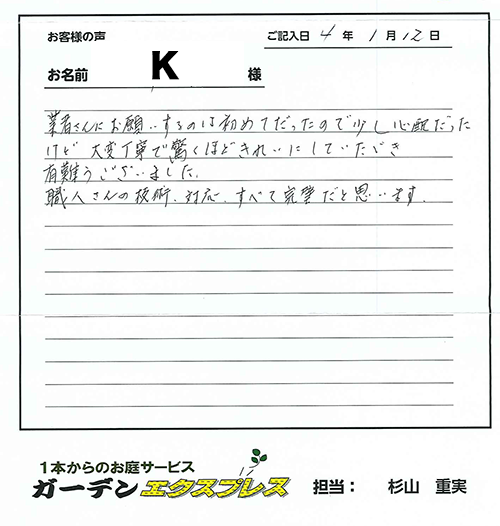 お客様の声
ご記入日 4 年 1 月 12 日
お名前 K 様
業者さんにお願いするのは初めてだったので少し心配だった
けど 大変丁寧で驚くほどきれいにしていただき
有難うございました。
職人さんの技術、対応、すべて完璧だと思います。
1本からのお庭サービス
ガーデンエクスプレス 担当： 杉山 重実